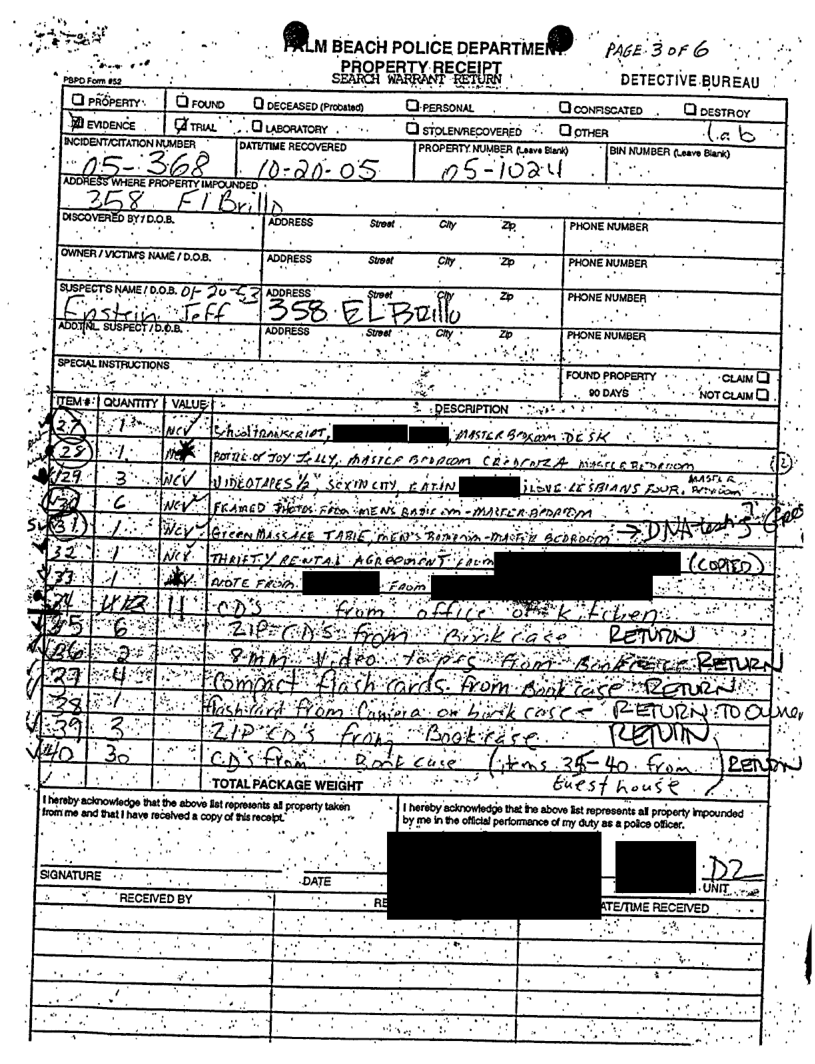 PALM BEACH POLICE DEPARTMENT PAGE 3 OF 6
PROPERTY RECEIPT
SEARCH WARRANT RETURN
PBPD Form #52 DETECTIVE BUREAU
PROPERTY FOUND DECEASED (Probated) PERSONAL CONFISCATED DESTROY
EVIDENCE TRIAL LABORATORY STOLEN/RECOVERED OTHER Lab
INCIDENT/CITATION NUMBER DATE/TIME RECOVERED PROPERTY NUMBER (Leave Blank) BIN NUMBER (Leave Blank)
05-368 10-20-05 05-1024
ADDRESS WHERE PROPERTY IMPOUNDED
358 El Brillo
DISCOVERED BY / D.O.B. ADDRESS Street City Zip PHONE NUMBER
OWNER / VICTIM'S NAME / D.O.B. ADDRESS Street City Zip PHONE NUMBER
SUSPECT'S NAME / D.O.B. 01-20-53 ADDRESS Street City Zip PHONE NUMBER
Epstein Jeff 358 EL Brillo
ADDT'NL. SUSPECT / D.O.B. ADDRESS Street City Zip PHONE NUMBER
SPECIAL INSTRUCTIONS FOUND PROPERTY CLAIM
90 DAYS NOT CLAIM
ITEM # QUANTITY VALUE DESCRIPTION
27 1 NCV School TRANSCRIPT, MASTER BEDROOM DESK
28 1 BOTTLE OF JOY JELLY, MASTER BEDROOM CREDENZA MASTER BEDROOM (2)
29 3 NCV VIDEOTAPES 1/2", SEX IN CITY, EATIN I LOVE LESBIANS FOUR, MASTER BEDROOM
30 6 NCV FRAMED PHOTOS FROM MENS BATHROOM-MASTER BEDROOM
31 1 NCV GREEN MASSAGE TABLE, MEN'S BATHROOM-MASTER BEDROOM → DNA testing
32 1 NCV THRIFTY RENTAL AGREEMENT FROM (COPIED)
33 1 NOTE FROM FROM
34 11 CD's from office of kitchen
35 6 ZIP-CD'S from Bookcase RETURN
36 2 8mm Video tapes from Bookcase RETURN
37 4 Compact flash cards from Bookcase RETURN
38 1 flashcard from Camera on bookcase - RETURN TO Owner
39 3 ZIP CD's from Bookcase RETURN
40 30 CD's from Bookcase (items 35-40 from Guest house) RETURN
TOTAL PACKAGE WEIGHT
I hereby acknowledge that the above list represents all property taken from me and that I have received a copy of this receipt.
I hereby acknowledge that the above list represents all property impounded by me in the official performance of my duty as a police officer.
D2
SIGNATURE DATE UNIT
RECEIVED BY RE ATE/TIME RECEIVED